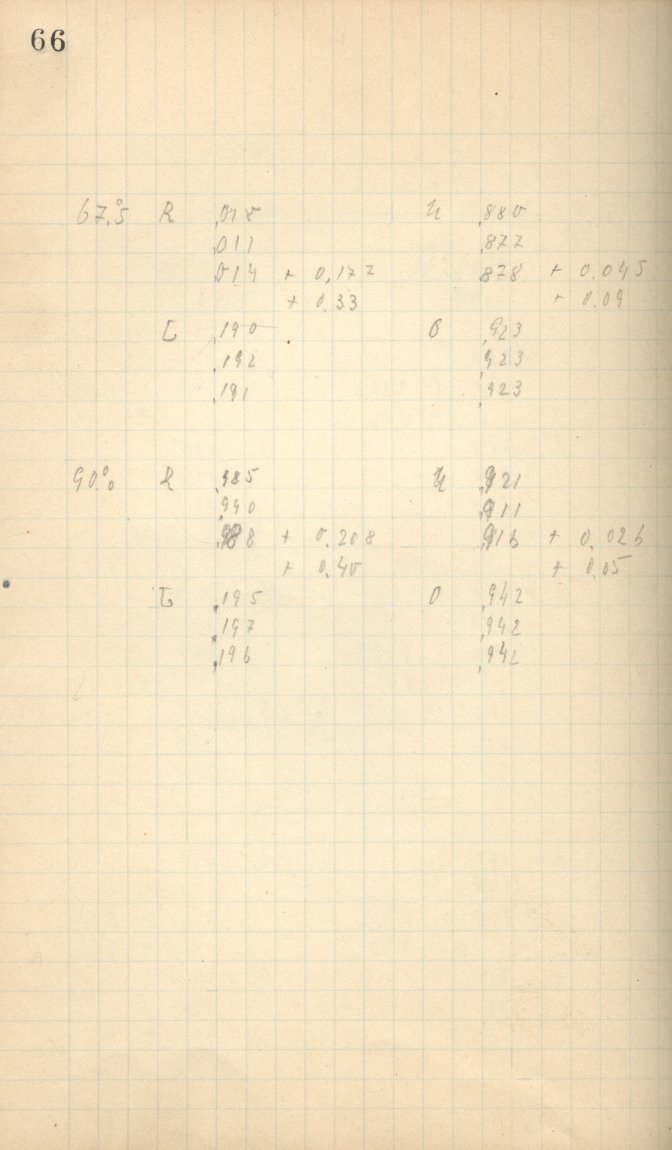 66
67.°5 R ,018 U ,880
,011 ,877
,014 + 0,177 ,878 + 0.045
+ 0,33 + 0.09
L ,190 O ,923
,192 ,923
,191 ,923
90.°0 R ,985 U ,921
,990 ,911
,988 + 0.208 ,916 + 0,026
+ 0,40 + 0,05
L ,195 O ,942
,197 ,942
,196 ,942